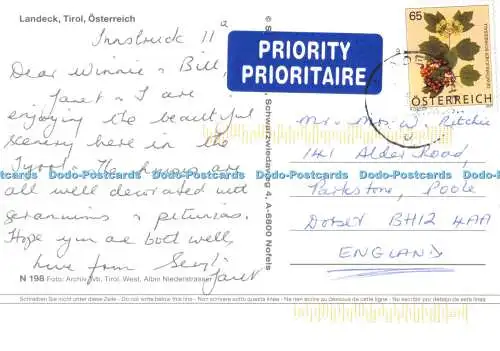 Landeck, Tirol, Österreich
Innsbruck 11ª
Dear Winnie & Bill,
Janet & I are
enjoying the beautiful
scenery here in the
Tyrol. The houses are
all well decorated wit
geraniums & petunias.
Hope you are both well,
love from
Janet
N 198 Foto: Archiv Vb. Tirol, West, Albin Niederstrasser
Schwarzwiedagasse 4, A-6800 Nofels
PRIORITY
PRIORITAIRE
65
ÖSTERREICH
Mr. & Mrs. W. Ritchie
141 Alder Road,
Parkstone, Poole
Dorset BH12 4AA
ENGLAND
Schreiben Sie nicht unter diese Zeile - Do not write below this line - Non scrivere sotto questa linea - Ne rien écrire au dessous de cette ligne - No escribir por debajo de esta línea
Dodo-Postcards Dodo-Postcards Dodo-Postcards Dodo-Postcards Dodo-Postcards Dodo-Postcards